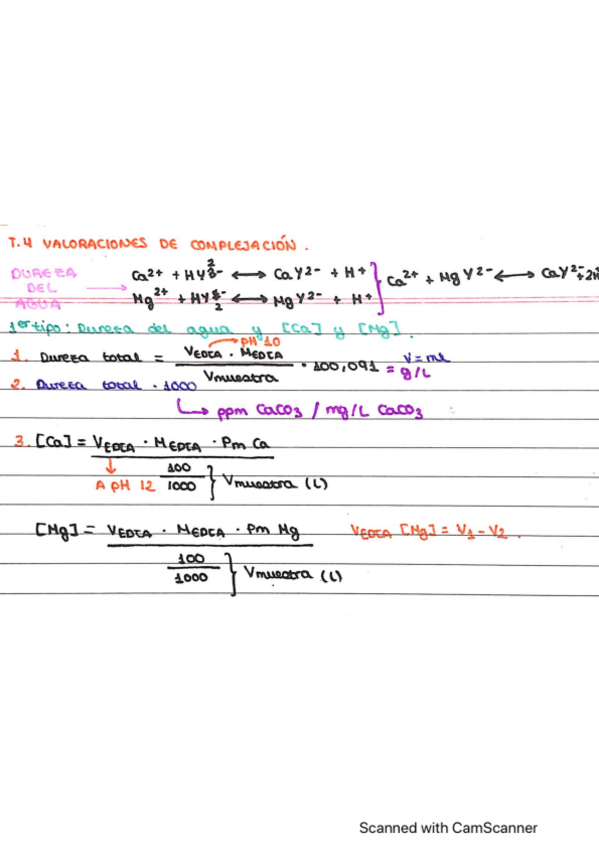 T.4 VALORACIONES DE COMPLEJACIÓN.
DUREZA DEL AGUA → Ca2+ + HY3- ↔ CaY2- + H+
Mg2+ + HY3- ↔ MgY2- + H+ } Ca2+ + MgY2- ↔ CaY2-
1er tipo: Dureza del agua y [Ca] y [Mg].
pH 10
1. Dureza total = VEDTA · MEDTA / Vmuestra · 100,091 = g/L V=mL
2. Dureza total · 1000
↳ ppm CaCO3 / mg/L CaCO3
3. [Ca] = VEDTA · MEDTA · Pm Ca
A pH 12 100/1000 } Vmuestra (L)
[Mg] = VEDTA · MEDTA · Pm Mg VEDTA [Mg] = V1 - V2.
100/1000 } Vmuestra (L)
Scanned with CamScanner